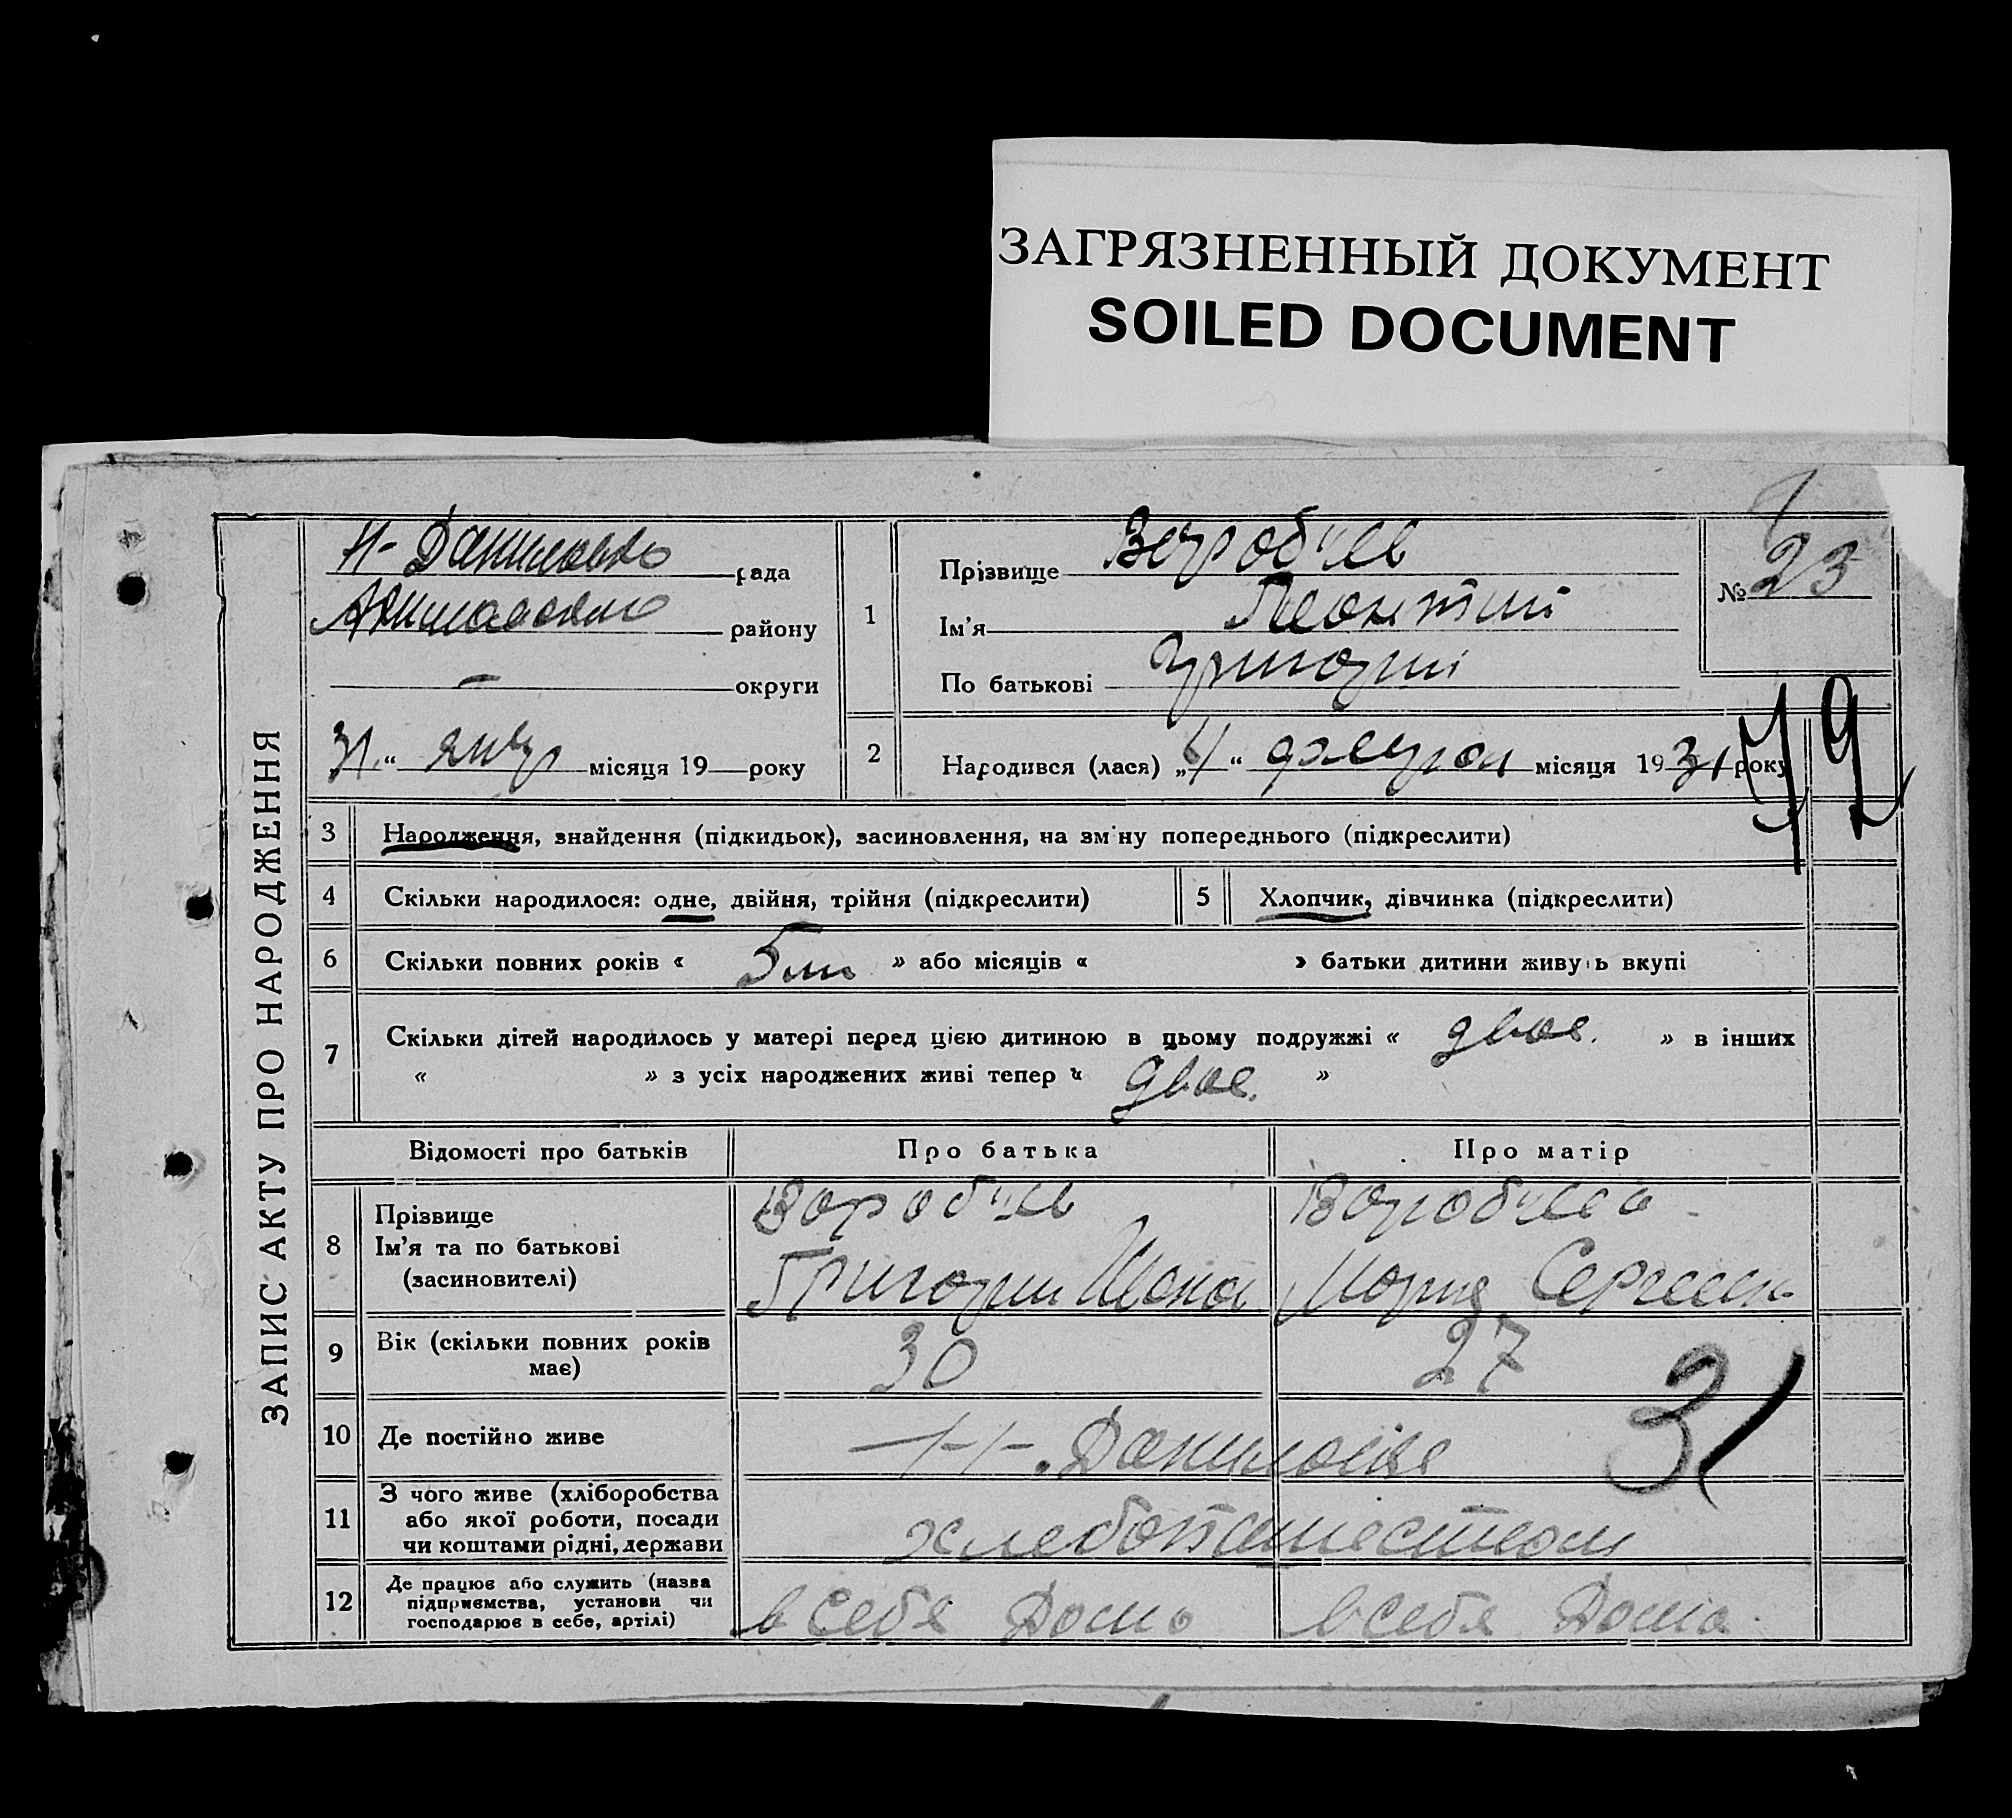 ЗАГРЯЗНЕННЫЙ ДОКУМЕНТ
SOILED DOCUMENT
ЗАПИС АКТУ ПРО НАРОДЖЕННЯ
Н-Даниловка рада
району
— округи
31 “ янвр місяця 19 року
1
Прізвище Воробьев
Ім’я Леонтий
По батькові Григории
№ 23
2
Народився (лася) „ “ місяця 1931 року
3 Народження, знайдення (підкидьок), засиновлення, на зміну попереднього (підкреслити)
4 Скільки народилося: одне, двійня, трійня (підкреслити)
5 Хлопчик, дівчинка (підкреслити)
6 Скільки повних років « 5 » або місяців « » батьки дитини живуть вкупі
7 Скільки дітей народилось у матері перед цією дитиною в цьому подружжі « двое. » в інших
« » з усіх народжених живі тепер « двое. »
Відомості про батьків Про батька Про матір
8 Прізвище
Ім’я та по батькові
(засиновителі)
Воробьев
Григории
Воробьева
Мария Сергеен
9 Вік (скільки повних років
має)
30 27
31
10 Де постійно живе Н. Даниловка
11 З чого живе (хліборобства
або якої роботи, посади
чи коштами рідні, держави
хлебопашеством
12 Де працює або служить (назва
підприємства, установи чи
господарює в себе, артілі)
в себя дома в себя дома